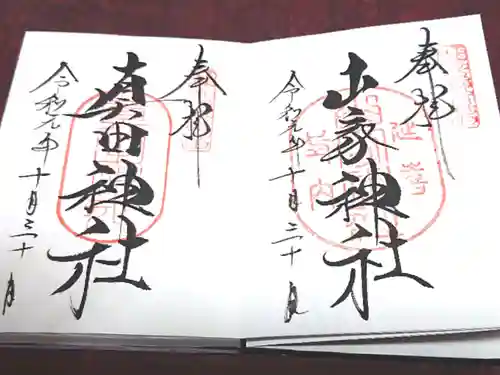 奉拝
山家神社
令和元年十月三十日
奉拝
真田神社
令和元年十月三十日